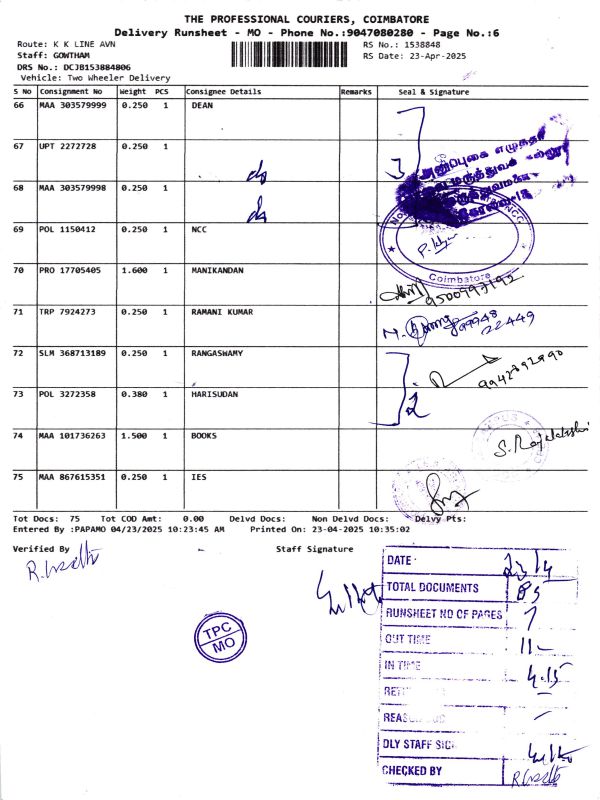 THE PROFESSIONAL COURIERS, COIMBATORE
Delivery Runsheet - MO - Phone No.:9047080280 - Page No.:6
Route: K K LINE AVN
RS No.: 1538848
Staff: GOWTHAM
RS Date: 23-Apr-2025
DRS No.: DCJB153884806
Vehicle: Two Wheeler Delivery
S No Consignment No Weight PCS Consignee Details Remarks Seal & Signature
66 MAA 303579999 0.250 1 DEAN
67 UPT 2272728 0.250 1
68 MAA 303579998 0.250 1
69 POL 1150412 0.250 1 NCC
Coimbatore
70 PRO 17705405 1.600 1 MANIKANDAN
9500997192
71 TRP 7924273 0.250 1 RAMANI KUMAR
99948
22449
72 SLM 368713189 0.250 1 RANGASWAMY
9942392990
73 POL 3272358 0.380 1 HARISUDAN
2
74 MAA 101736263 1.500 1 BOOKS
S. Rajalakshmi
75 MAA 867615351 0.250 1 IES
Tot Docs: 75 Tot COD Amt: 0.00 Delvd Docs: Non Delvd Docs: Delvy Pts:
Entered By :PAPAMO 04/23/2025 10:23:45 AM Printed On: 23-04-2025 10:35:02
Verified By Staff Signature
TPC
MO
DATE 23/4
TOTAL DOCUMENTS 85
RUNSHEET NO OF PAGES 7
OUT TIME 11-
IN TIME 4.15
DLY STAFF SIG
CHECKED BY